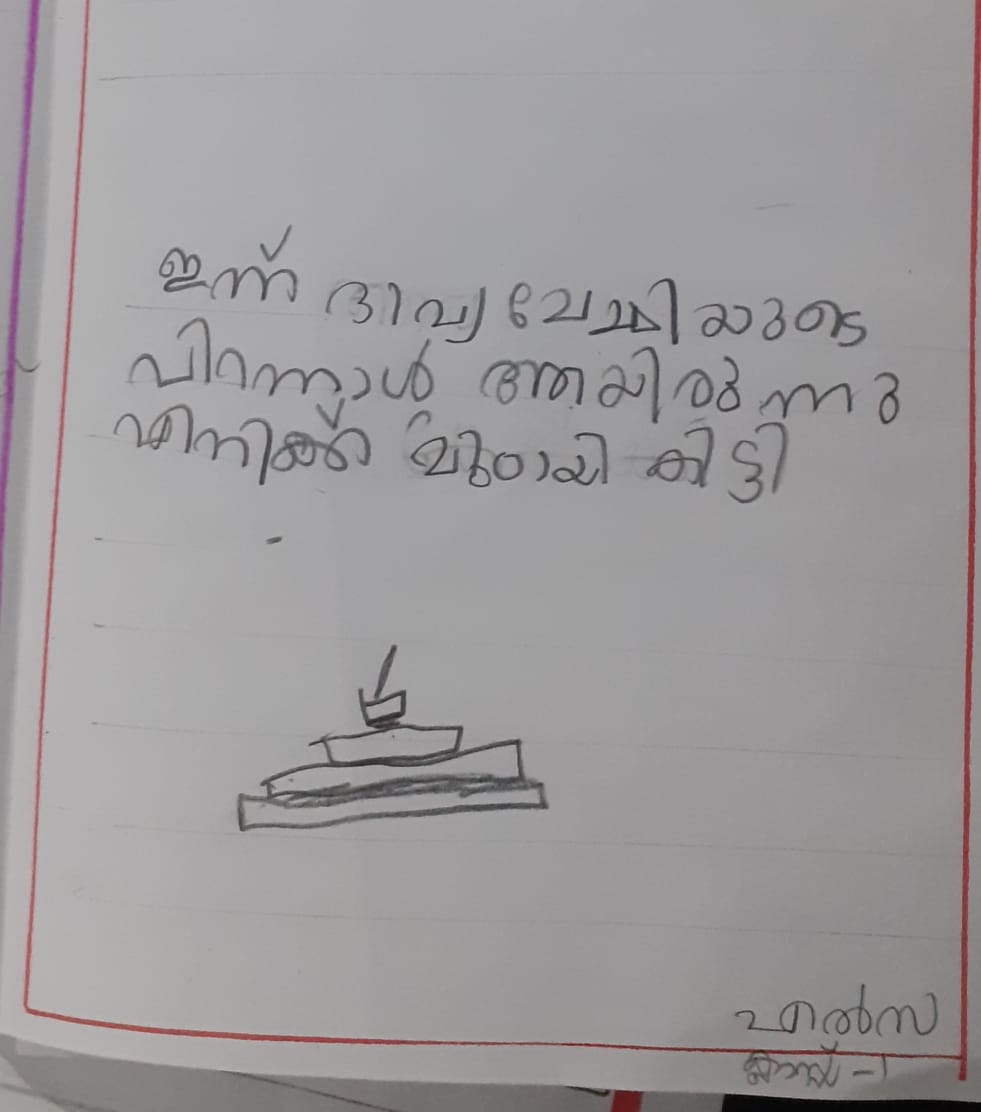 ഇന്ന് ദിവ്യ ചേച്ചിയുടെ
പിറന്നാൾ ആയിരുന്നു
എനിക്ക് മിഠായി കിട്ടി
ക്ലാസ് -1